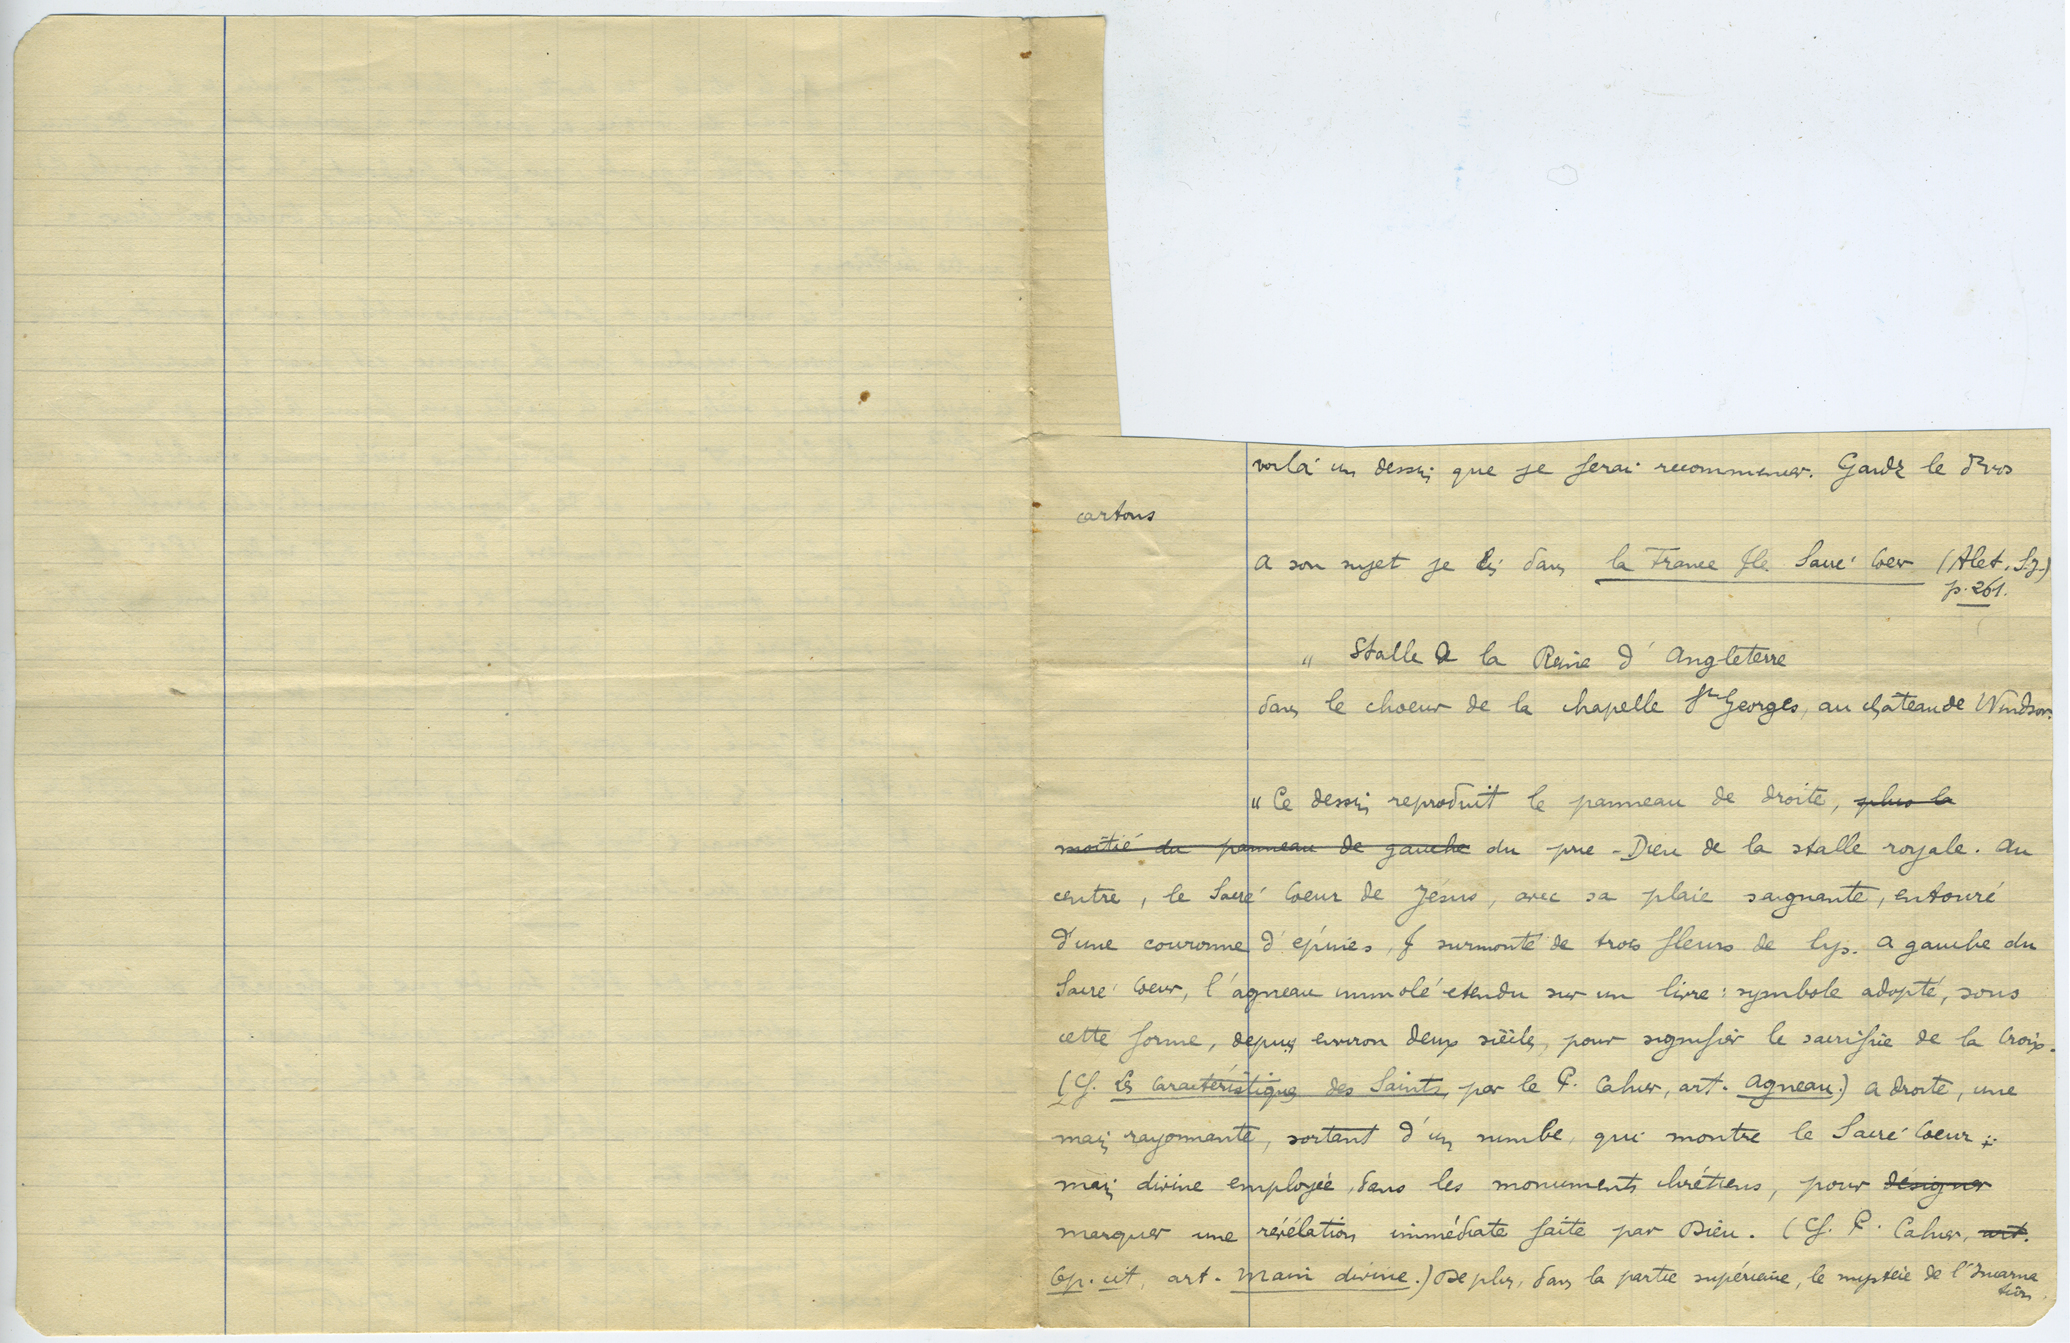 voilà un dessin que je ferai recommencer. Gardez le dans vos
cartons
A son sujet je lis dans la France & le Sacré Coeur (Alet, S.J.)
p. 261.
" Stalle de la Reine d'Angleterre
dans le choeur de la chapelle St Georges, au château de Windsor.
" Ce dessin reproduit le panneau de droite, plus la
moitié du panneau de gauche du prie-Dieu de la stalle royale. Au
centre, le Sacré Coeur de Jésus, avec sa plaie saignante, entouré
d'une couronne d'épines, & surmonté de trois fleurs de lys. A gauche du
Sacré Coeur, l'agneau immolé étendu sur un livre : symbole adopté, sous
cette forme, depuis environ deux siècles, pour signifier le sacrifice de la Croix.
(Cf. les Caractéristiques des Saints, par le P. Cahier, art. Agneau.) A droite, une
main rayonnante, sortant d'un nimbe, qui montre le Sacré Coeur :
main divine employée, dans les monuments chrétiens, pour désigner
marquer une révélation immédiate faite par Dieu. (Cf. P. Cahier, art.
Op. cit, art. Main divine.) De plus, dans la partie supérieure, le mystère de l'Incarna
tion.